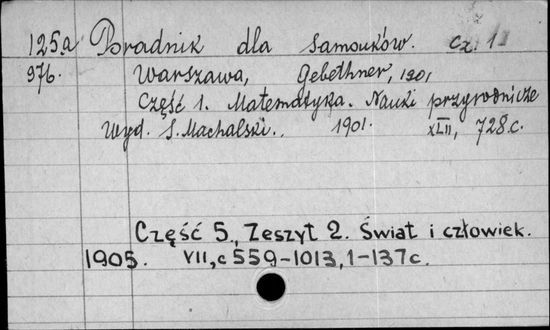 125a Poradnik dla samouków. Cz. 1
976. Warszawa, Gebethner, 1901
Część 1. Matematyka. Nauki przyrodnicze
Wyd. S. Machalski.. 1901. XLII, 728 c.
Część 5., Zeszyt 2. Świat i człowiek.
1905. VII, c 559-1013, 1-137 c.